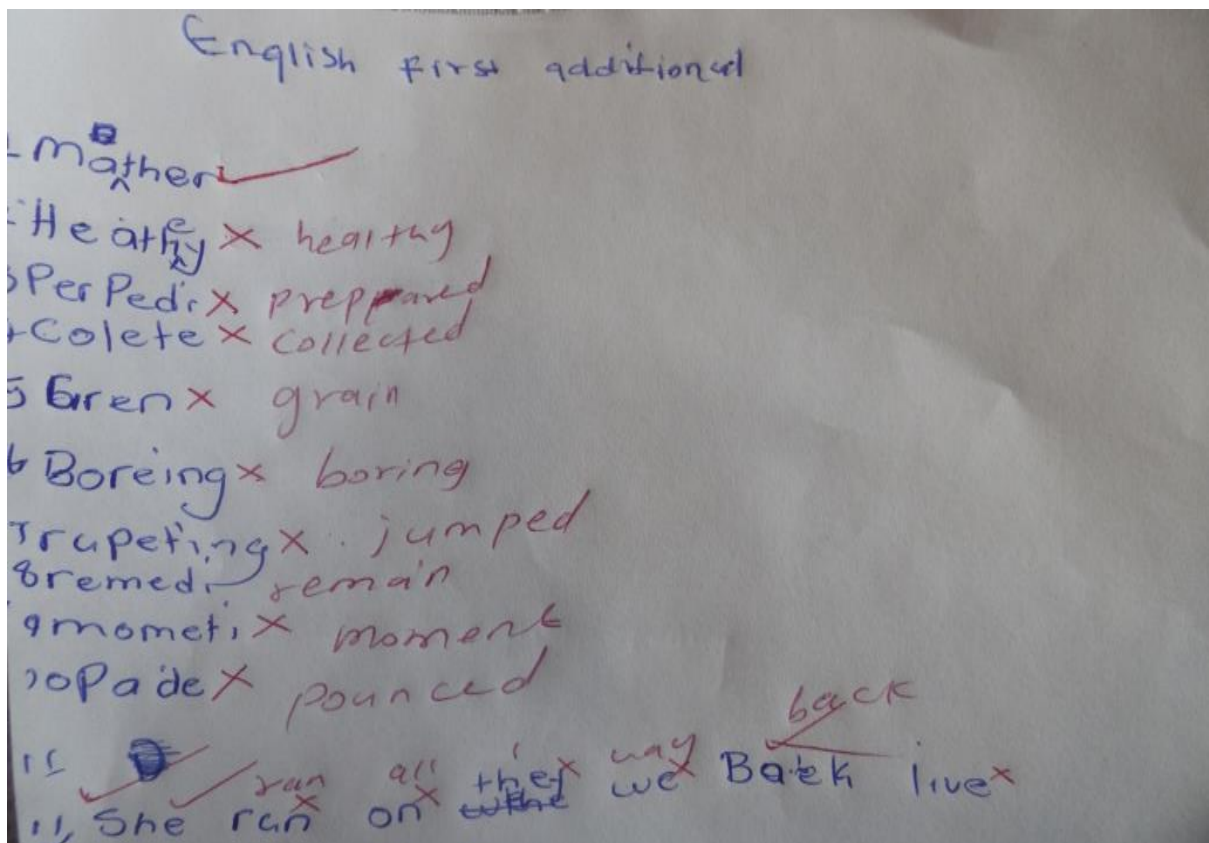 English first additional
mather ✓
Heathy × healthy
3 Per Pedi × prepared
4 Colete × collected
5 Gren × grain
6 Boreing × boring
7 Trupeting × jumped
8 remedi remain
9 mometi × moment
10 Pade × pounced
back
11
ran all way
11, She run on they we Back live ×